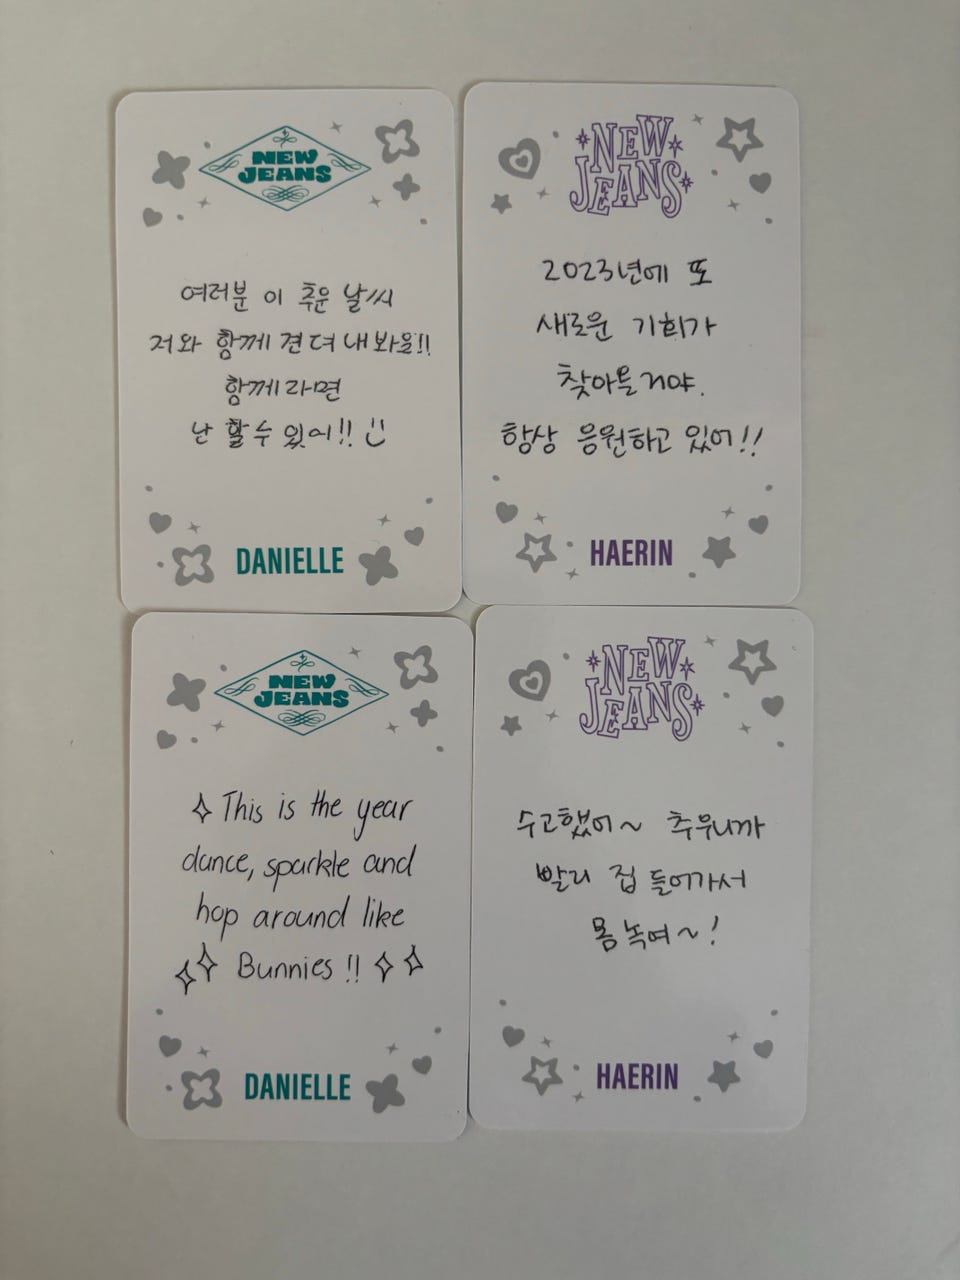 NEW
JEANS
여러분 이 추운 날씨
저와 함께 견뎌내봐요!!
함께라면
난 할 수 있어!!
DANIELLE
NEW
JEANS
2023년에 또
새로운 기회가
찾아올거야.
항상 응원하고 있어!!
HAERIN
NEW
JEANS
This is the year
dance, sparkle and
hop around like
Bunnies !!
DANIELLE
NEW
JEANS
수고했어~ 추우니까
빨리 집 들어가서
몸 녹여~!
HAERIN